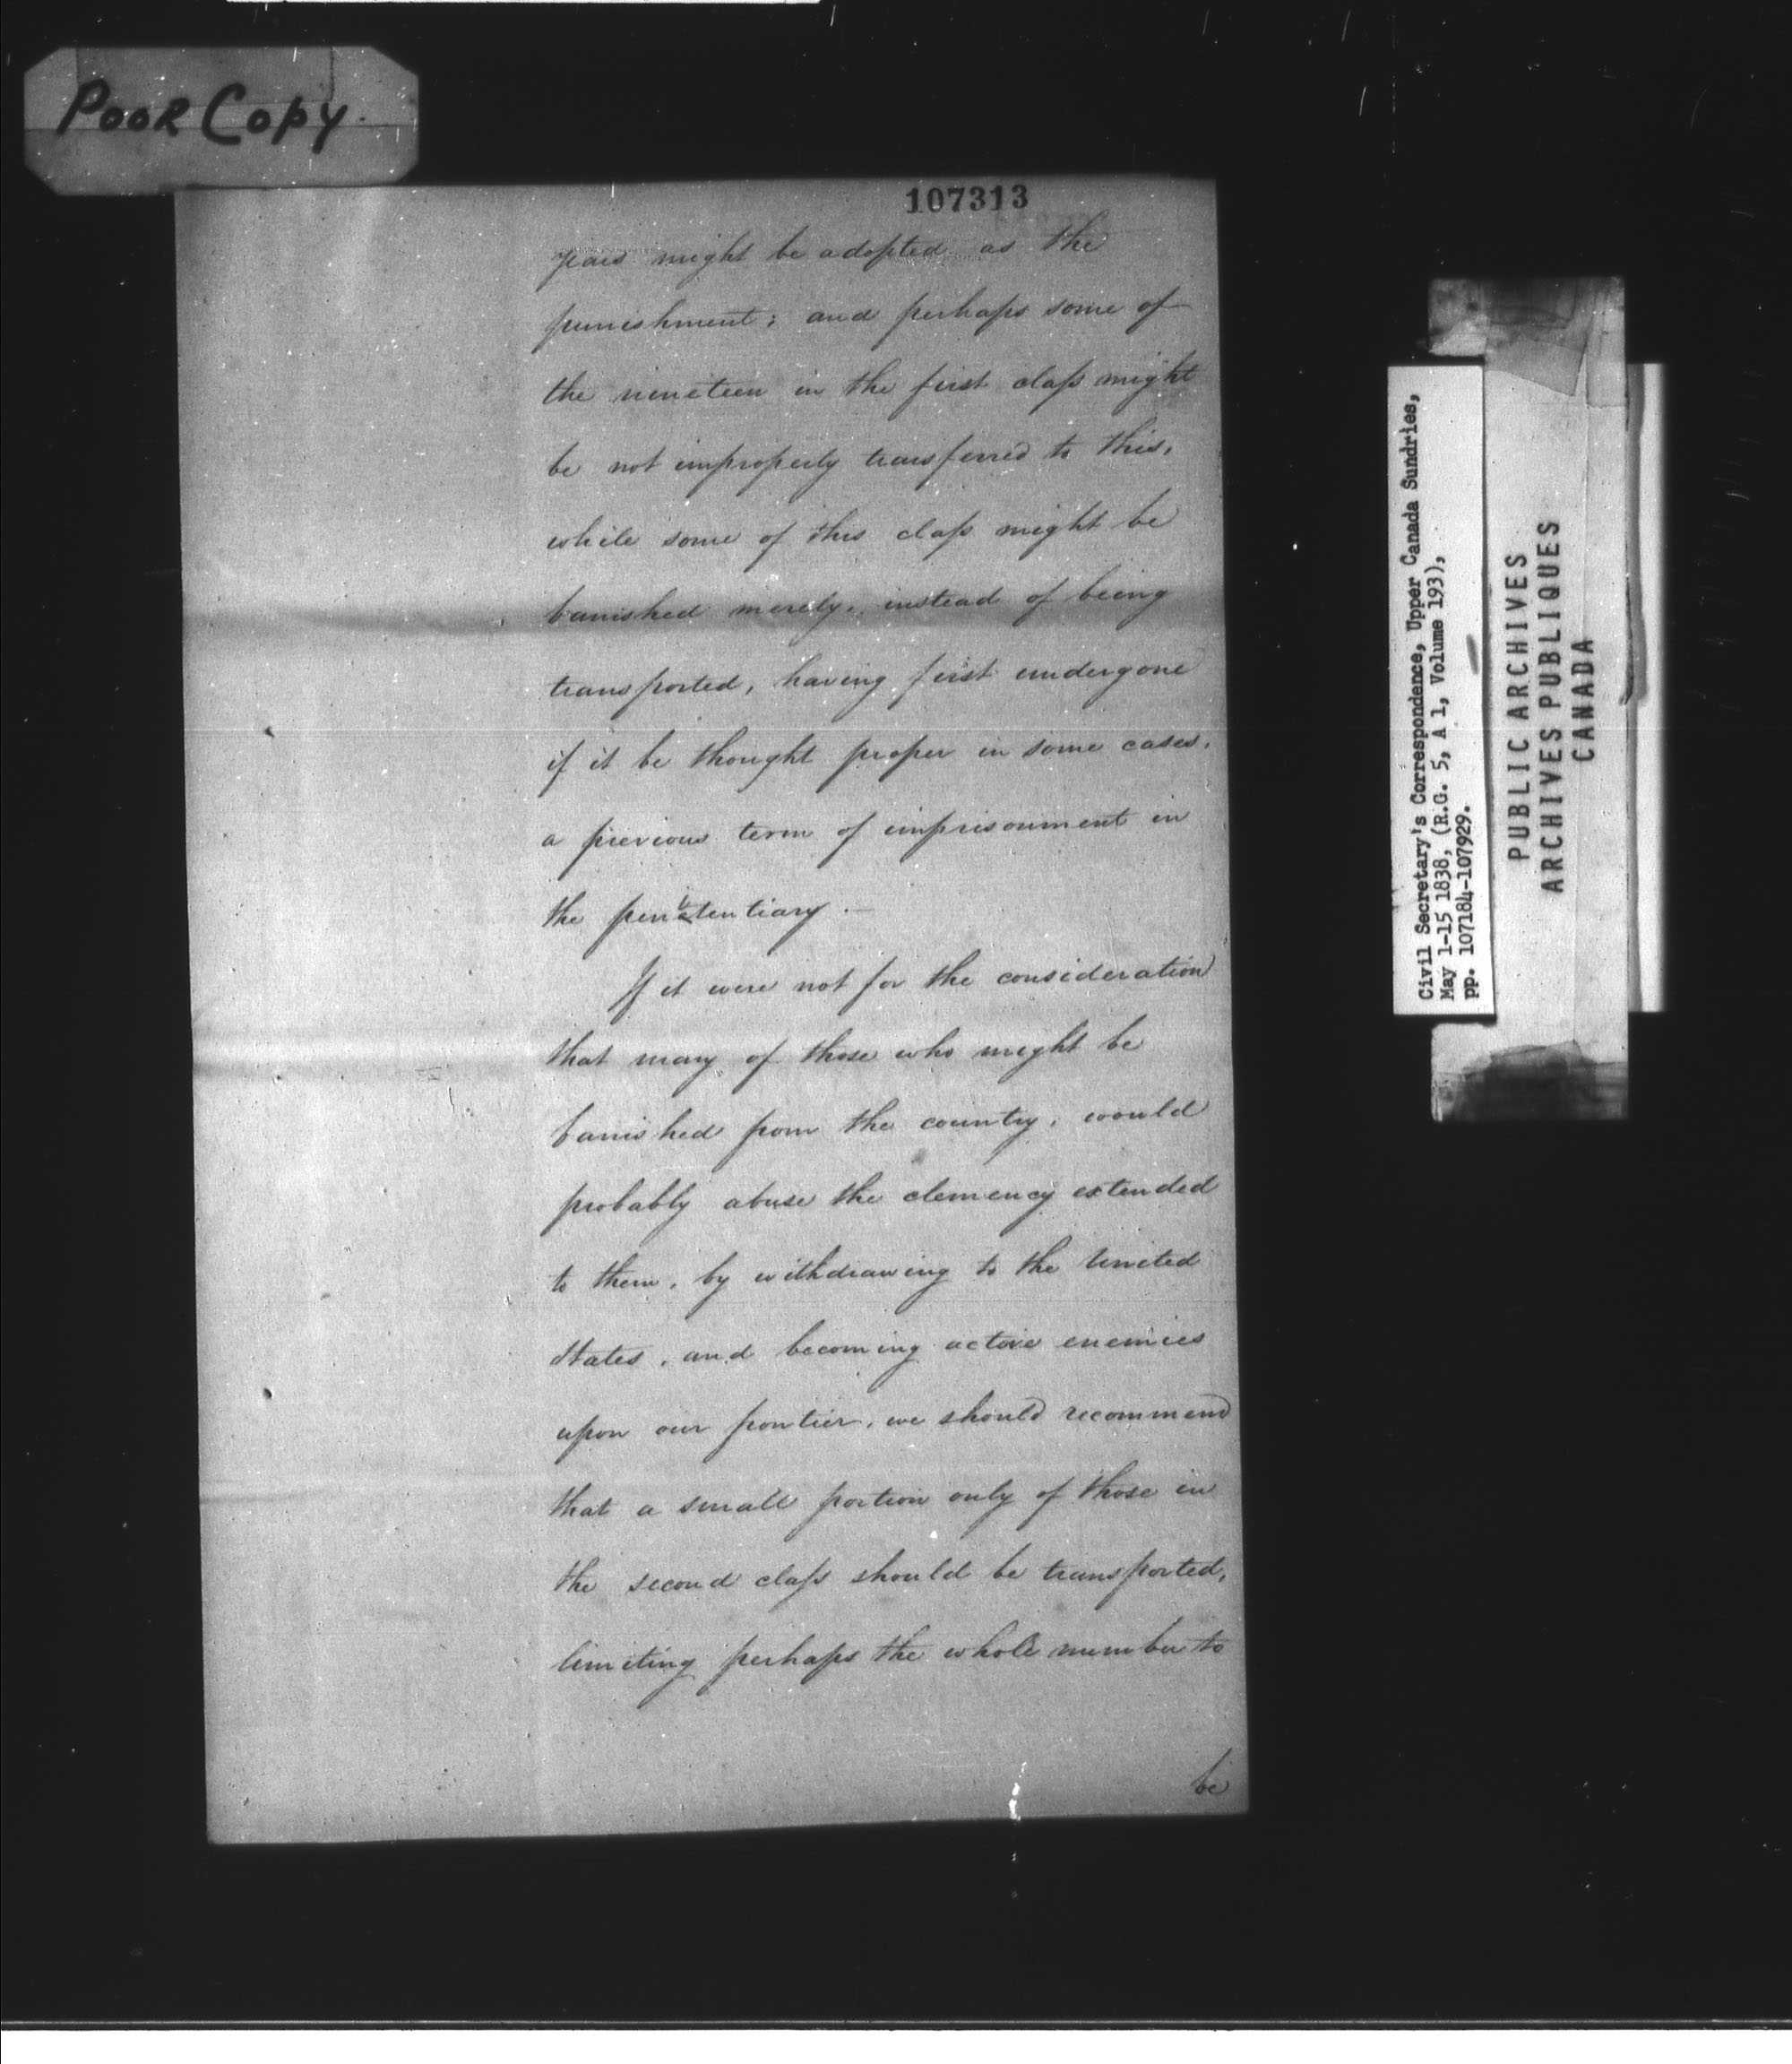 Poor Copy.
107313
years might be adopted as the
punishment; and perhaps some of
the nineteen in the first class might
be not improperly transferred to this,
while some of this class might be
banished merely, instead of being
transported, having first undergone
if it be thought proper in some cases,
a previous term of imprisonment in
the penitentiary.—
If it were not for the consideration
that many of those who might be
banished from the country, would
probably abuse the clemency extended
to them, by withdrawing to the United
States, and becoming active enemies
upon our frontier, we should recommend
that a small portion only of those in
the second class should be transported,
limiting perhaps the whole number to
be
Civil Secretary's Correspondence, Upper Canada Sundries,
May 1-15 1838, (R.G. 5, A 1, Volume 193),
pp. 107184-107929.
PUBLIC ARCHIVES
ARCHIVES PUBLIQUES
CANADA